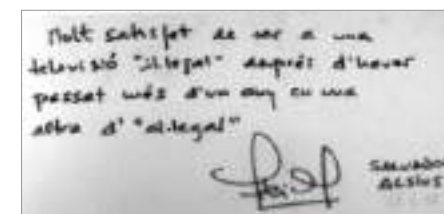 Molt satisfet de ser a una
televisió "il.legal" després d'haver
passat més d'un any en una
altra d' "al.legal"
SALVADOR
ALSIUS